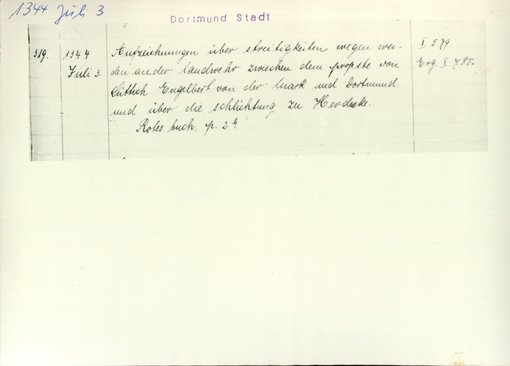 1344 Juli 3
Dortmund Stadt
319. 1344 Aufzeichnungen über streitigkeiten wegen wei- I 579
Juli 3. den an der landwehr zwischen dem propste von Erg. I 785.
Lüttich Engelbert von der Mark und Dortmund,
und über die schlichtung zu Herdecke.
Rotes buch, p. 2